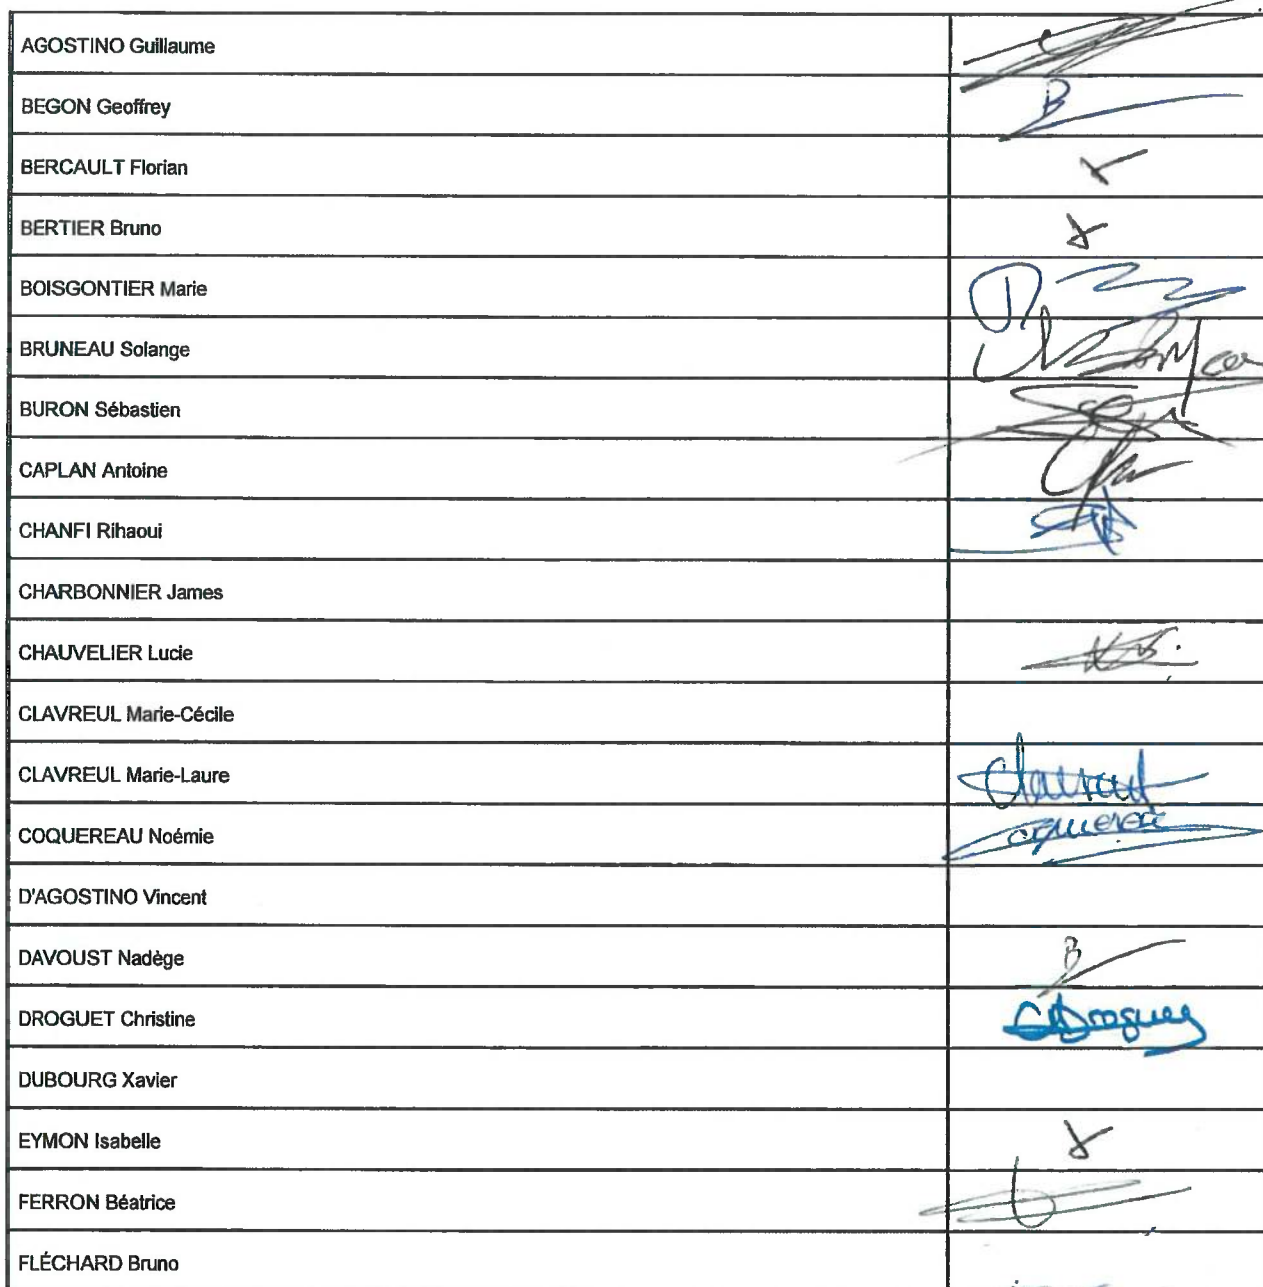 AGOSTINO Guillaume
BEGON Geoffrey
B
BERCAULT Florian
BERTIER Bruno
BOISGONTIER Marie
BRUNEAU Solange
BURON Sébastien
CAPLAN Antoine
CHANFI Rihaoui
CHARBONNIER James
CHAUVELIER Lucie
CLAVREUL Marie-Cécile
CLAVREUL Marie-Laure
COQUEREAU Noémie
D'AGOSTINO Vincent
DAVOUST Nadège
B
DROGUET Christine
DUBOURG Xavier
EYMON Isabelle
FERRON Béatrice
FLÉCHARD Bruno